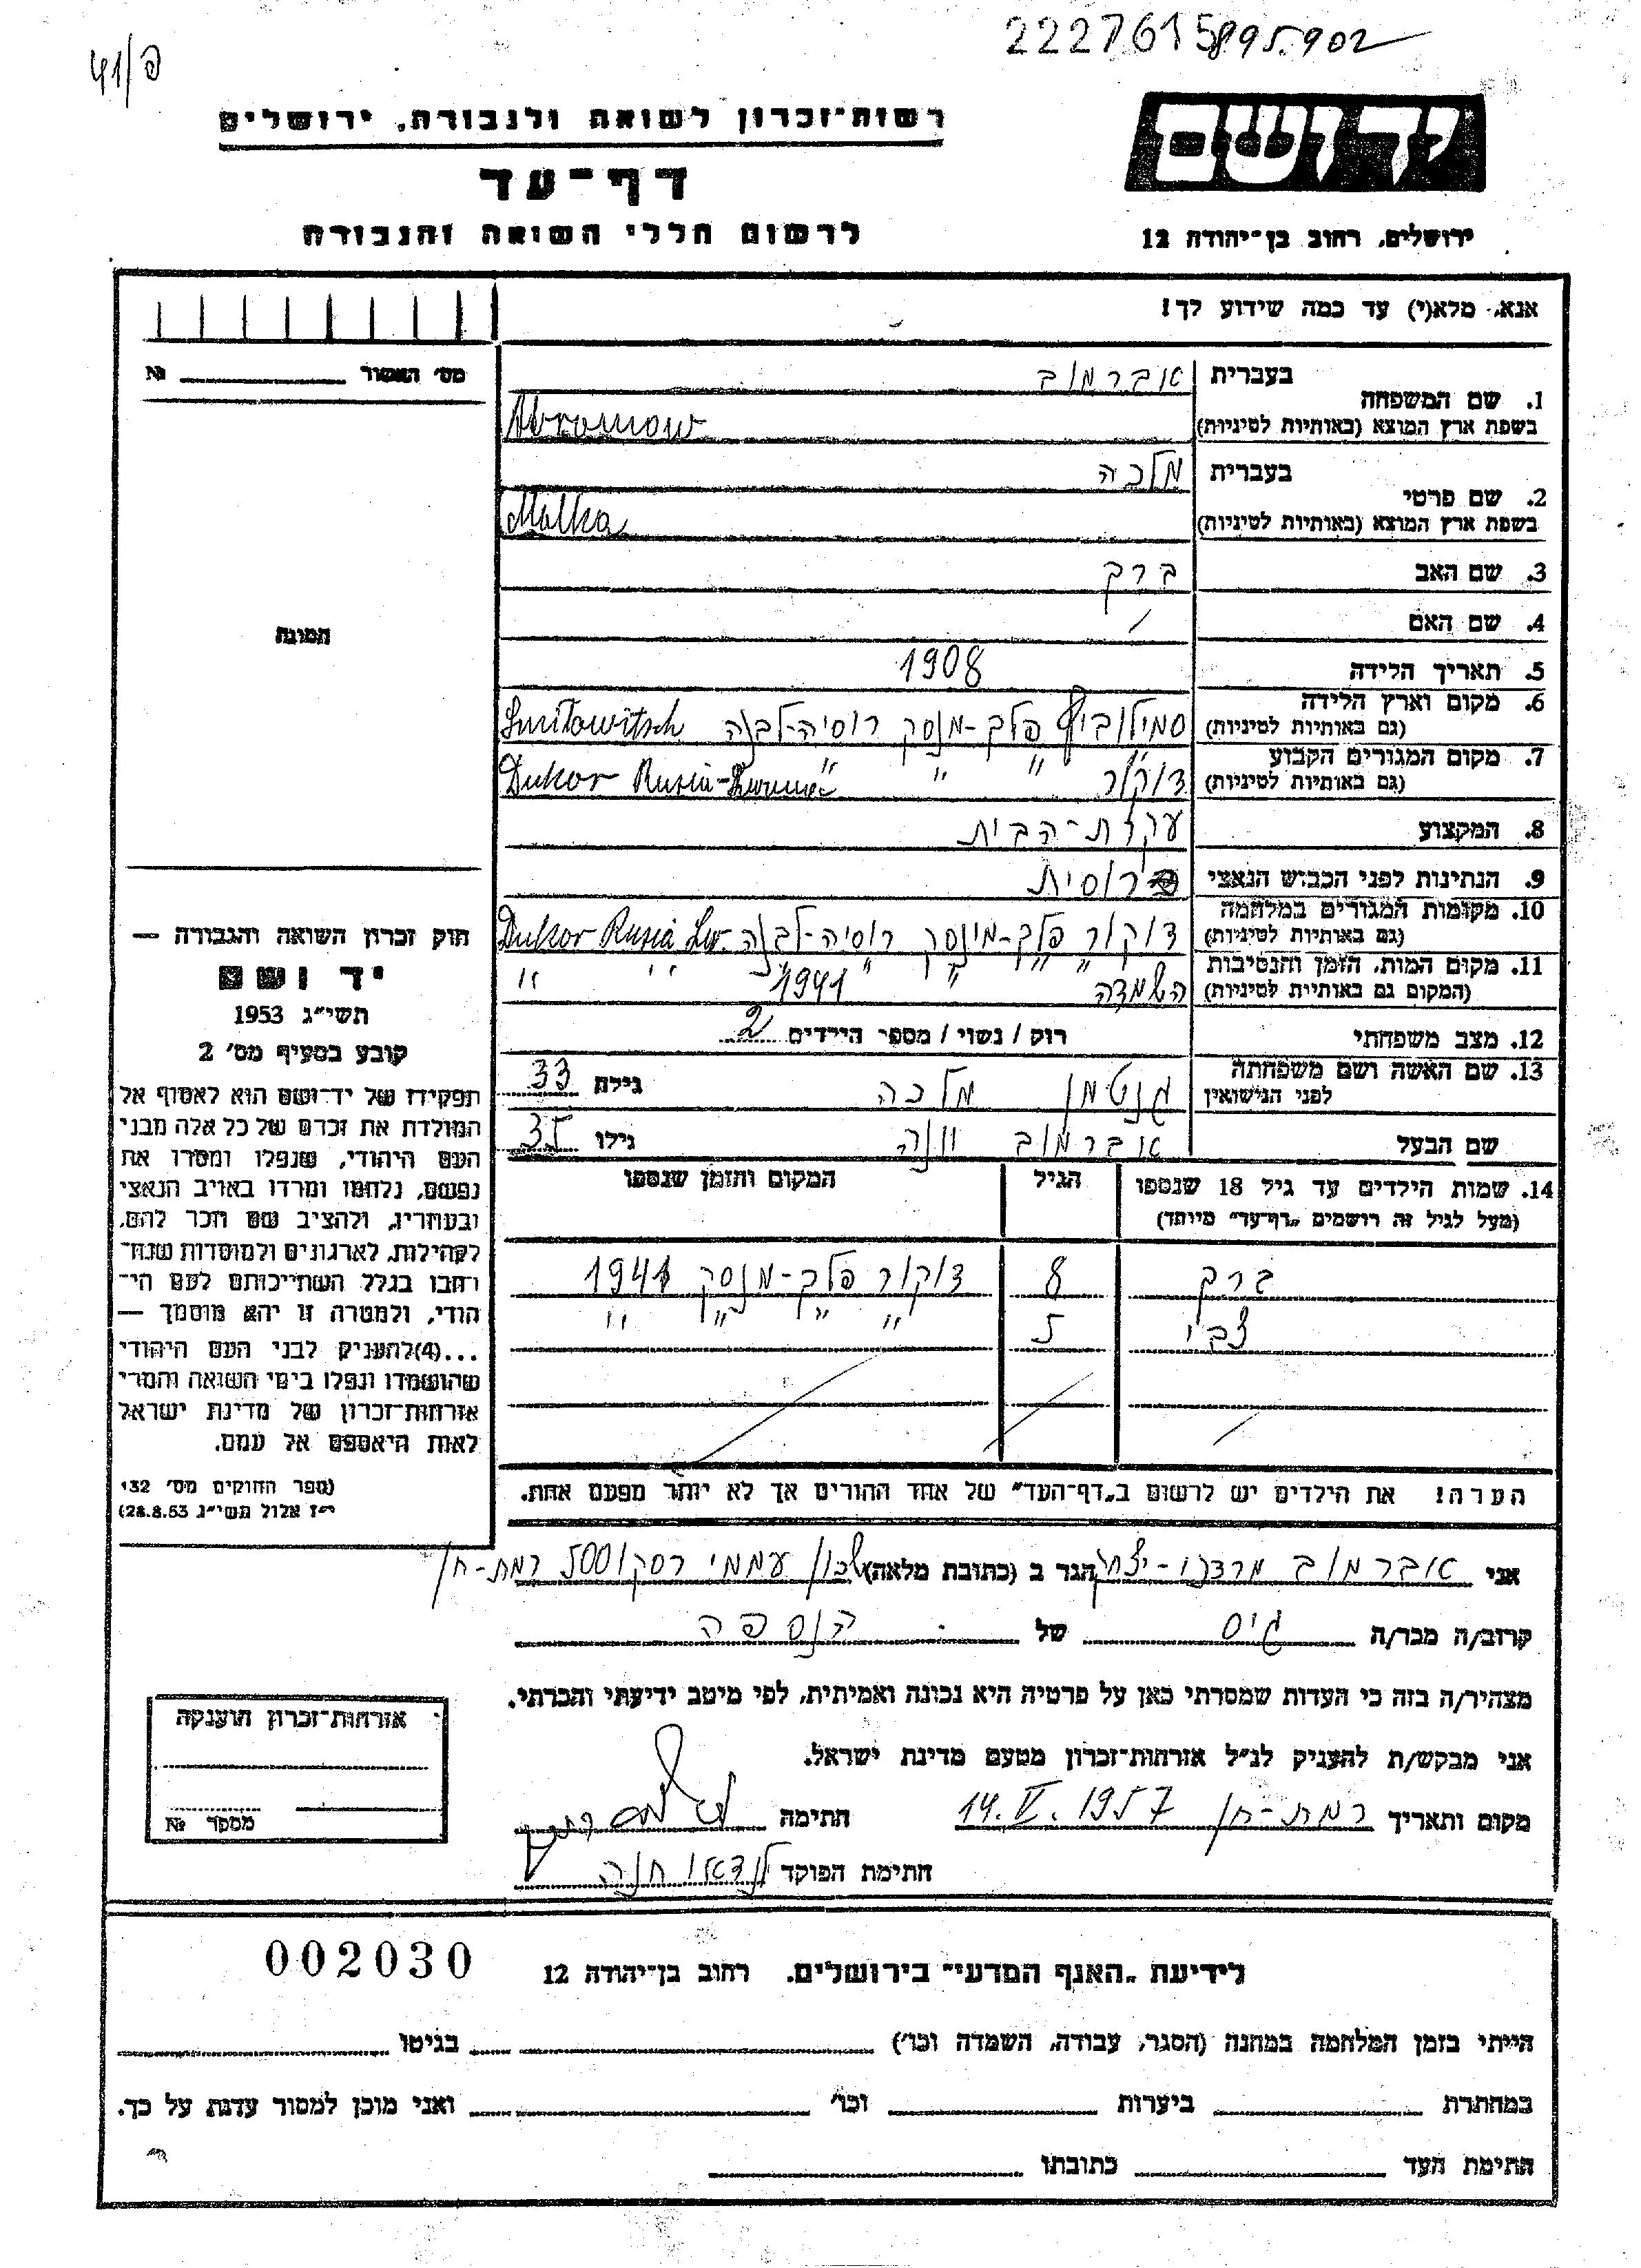 2227615895.902
41/פ
ידושם
רשות־זכרון לשואה ולגבורה, ירושלים
דף־עד
ירושלים, רחוב בן־יהודה 12
לרשום חללי השואה והגבורה
אנא, מלא(י) עד כמה שידוע לך!
מס׳ האשור № 
בעברית אברמוב
1. שם המשפחה
בשפת ארץ המוצא (באותיות לטיניות) Abramow
בעברית מלכה
2. שם פרטי
בשפת ארץ המוצא (באותיות לטיניות) Malka
3. שם האב ברק
4. שם האם /
תמונה
5. תאריך הלידה 1908
6. מקום וארץ הלידה
(גם באותיות לטיניות) סמילוביץ פלך-מנסק רוסיה-לבנה Smilowitsch
7. מקום המגורים הקבוע
(גם באותיות לטיניות) דוקור " " " Dukor Rusia-
8. המקצוע עקרת-הבית
9. הנתינות לפני הכבוש הנאצי רוסית
10. מקומות המגורים במלחמה
(גם באותיות לטיניות) דוקור פלך-מינסק רוסיה-לבנה Dukor Rusia Lw.
11. מקום המות, הזמן והנסיבות
(המקום גם באותיות לטיניות) השמדה " " " 1941 " "
12. מצב משפחתי רוק / נשוי / מספר הילדים 2
13. שם האשה ושם משפחתה
לפני הנישואין גנטמן מלכה גילה 33
שם הבעל אברמוב יונה גילו 35
14. שמות הילדים עד גיל 18 שנספו
(מעל לגיל זה רושמים „דף־עד" מיוחד)
הגיל
המקום והזמן שנספו
ברק 8 דוקור פלך-מנסק 1941
צבי 5 " " " " "
הערה! את הילדים יש לרשום ב„דף־העד" של אחד ההורים אך לא יותר מפעם אחת.
חוק זכרון השואה והגבורה —
יד ושם
תשי״ג 1953
קובע בסעיף מס׳ 2
תפקידו של יד־ושם הוא לאסוף אל
המולדת את זכרם של כל אלה מבני
העם היהודי, שנפלו ומסרו את
נפשם, נלחמו ומרדו באויב הנאצי
ובעוזריו, ולהציב שם וזכר להם,
לקהילות, לארגונים ולמוסדות שנח־
רבו בגלל השתייכותם לעם הי־
הודי, ולמטרה זו יהא מוסמך —
...(4)להעניק לבני העם היהודי
שהושמדו ונפלו בימי השואה והמרי
אזרחות־זכרון של מדינת ישראל
לאות היאספם אל עמם.
(ספר החוקים מס׳ 132
י״ז אלול תשי״ג 28.8.53)
אני אברמוב מרדכי-יצחק הגר ב (כתובת מלאה) שכון עממי רסקו 500 רמת-חן
קרוב/ה מכר/ה גיס של הנספה
מצהיר/ה בזה כי העדות שמסרתי כאן על פרטיה היא נכונה ואמיתית, לפי מיטב ידיעתי והכרתי.
אני מבקש/ת להעניק לנ״ל אזרחות־זכרון מטעם מדינת ישראל.
מקום ותאריך רמת-חן 14.V.1957 חתימה
חתימת הפוקד לנדאו חנה
אזרחות־זכרון הוענקה
מספר №
002030
לידיעת „האגף המדעי" בירושלים, רחוב בן־יהודה 12
הייתי בזמן המלחמה במחנה (הסגר, עבודה, השמדה וכו׳) בגיטו
במחתרת ביערות וכו׳ ואני מוכן למסור עדות על כך.
חתימת העד כתובתו